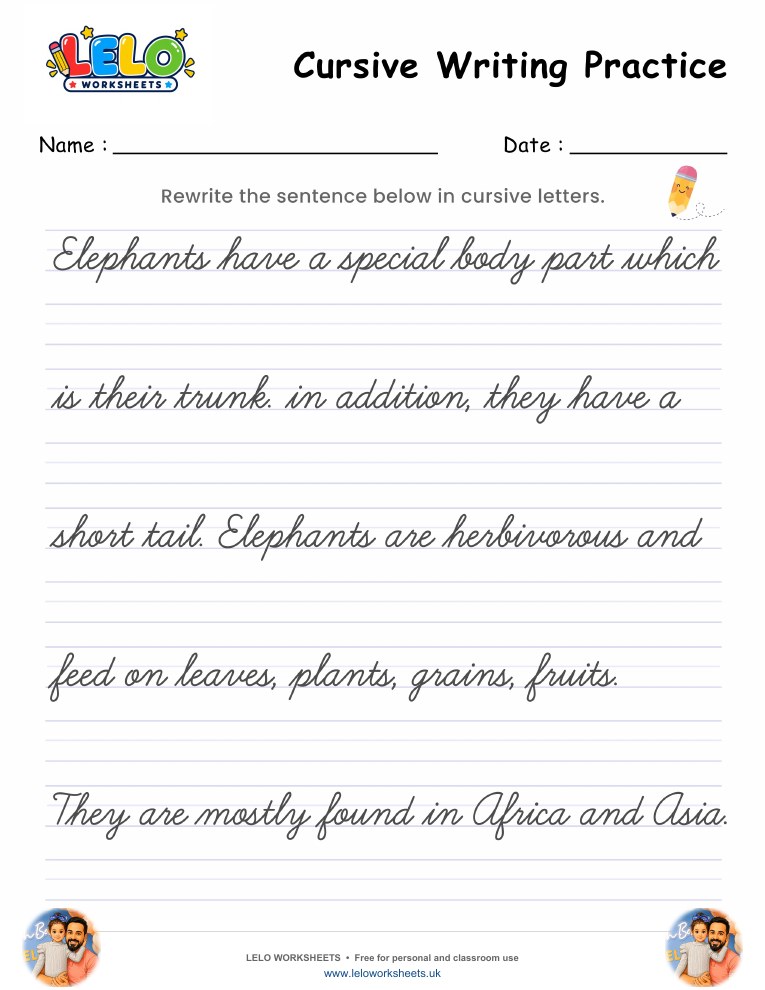 LELO
WORKSHEETS
Cursive Writing Practice
Name : Date :
Rewrite the sentence below in cursive letters.
Elephants have a special body part which
is their trunk. in addition, they have a
short tail. Elephants are herbivorous and
feed on leaves, plants, grains, fruits.
They are mostly found in Africa and Asia.
LELO WORKSHEETS • Free for personal and classroom use
www.leloworksheets.uk